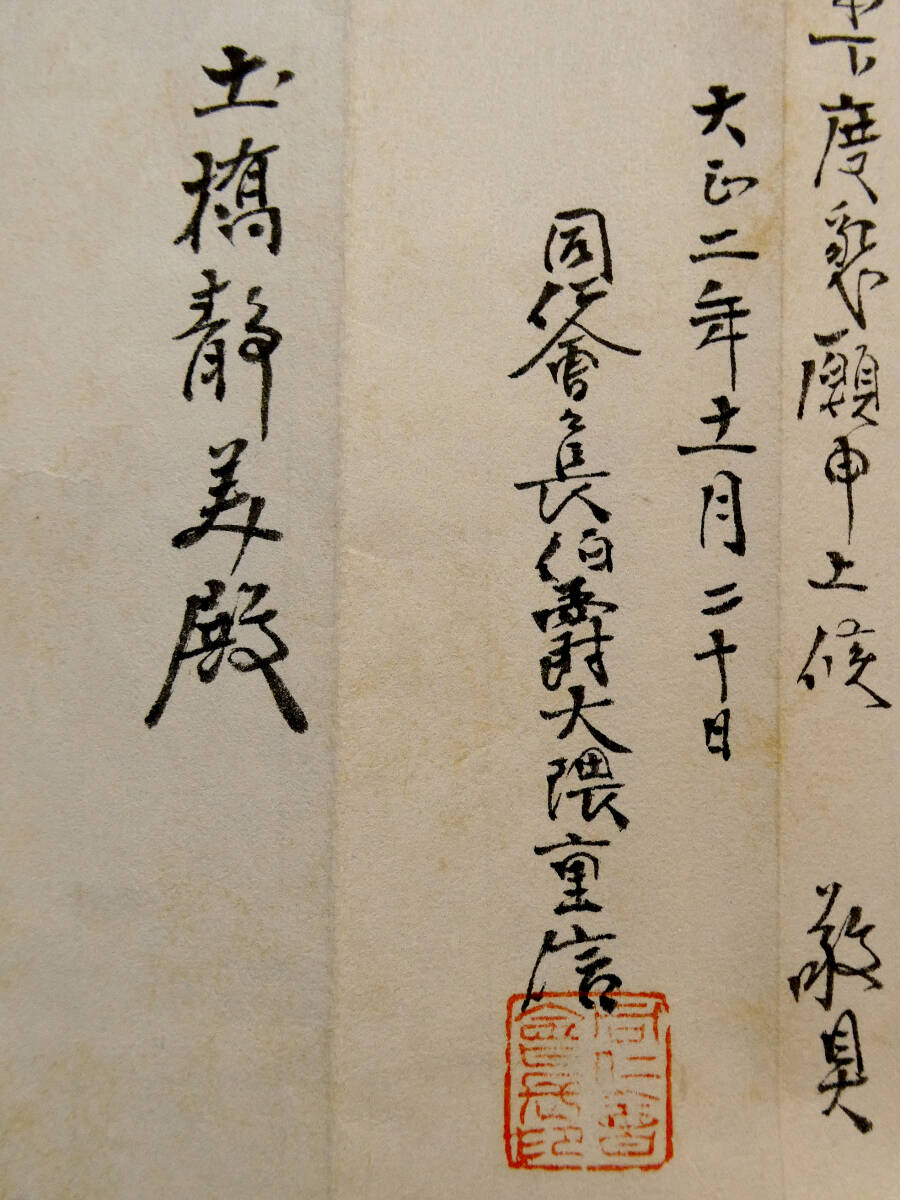 下度懇願申上候　敬具
大正二年十一月二十日
同仁會々長伯爵大隈重信
同仁會會長印
土橋靜美殿